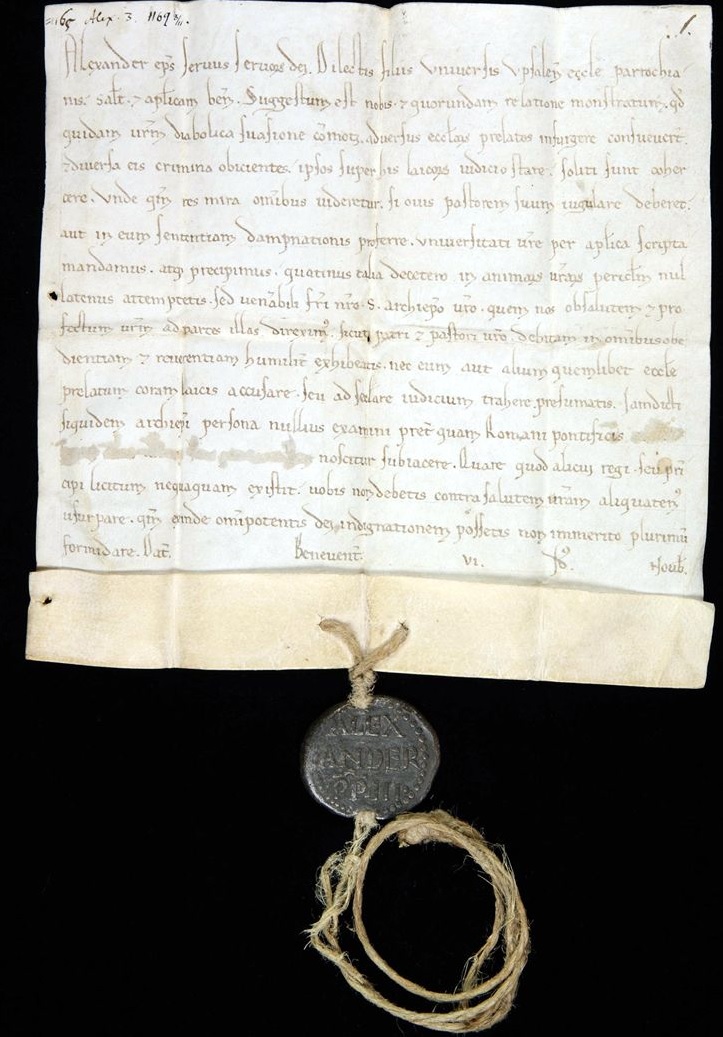 Alex. 3. 1169 8/11.
1.
Alexander eps seruus seruoꝝ dei. Dilectis filiis uniuersis Vpsaleñ eccle parrochia
nis. salt. ⁊ aplicam beñ. Suggestum est nobis. ⁊ quorundam relatione monstratum. qd
quidam urm diabolica suasione comoti. aduersus eccliaꝝ prelatos insurgere consueuert.
⁊ diuersa eis crimina obicientes. ipsos super his laicoꝝ iudicio stare. soliti sunt coher
cere. Vnde qm res mira omibus uideretur. si ouis pastorem suum iugulare deberet.
aut in eum sententiam dampnationis proferre. uniuersitati ure per aplica scripta
mandamus. atqꝫ precipimus. quatinus talia decetero in animaꝝ uraꝝ periclm nul
latenus attemptetis. Sed uenabili fri nro .S. archiepo uro. quem nos ob salutem ⁊ pro
fectum urm ad partes illas direximꝰ. sicut patri ⁊ pastori uro. debitam in omibus obe
dientiam ⁊ reuerentiam humilit exhibeatis. nec eum aut alium quemlibet eccle
prelatum coram laicis accusare. seu ad seclare iudicium trahere presumatis. Iamdicti
siquidem archiepi persona nullius examini pret quam Romani pontificis
noscitur subiacere. Quare quod alicui regi. seu pri
cipi licitum nequaquam existit. uobis non debetis contra salutem uram aliquatenꝰ
usurpare. qm exinde omipotentis dei indignationem possetis non immerito plurimū
formidare. Dat. Beneuent. VI. Id. Noub.
ALEX
ANDER
PP. III